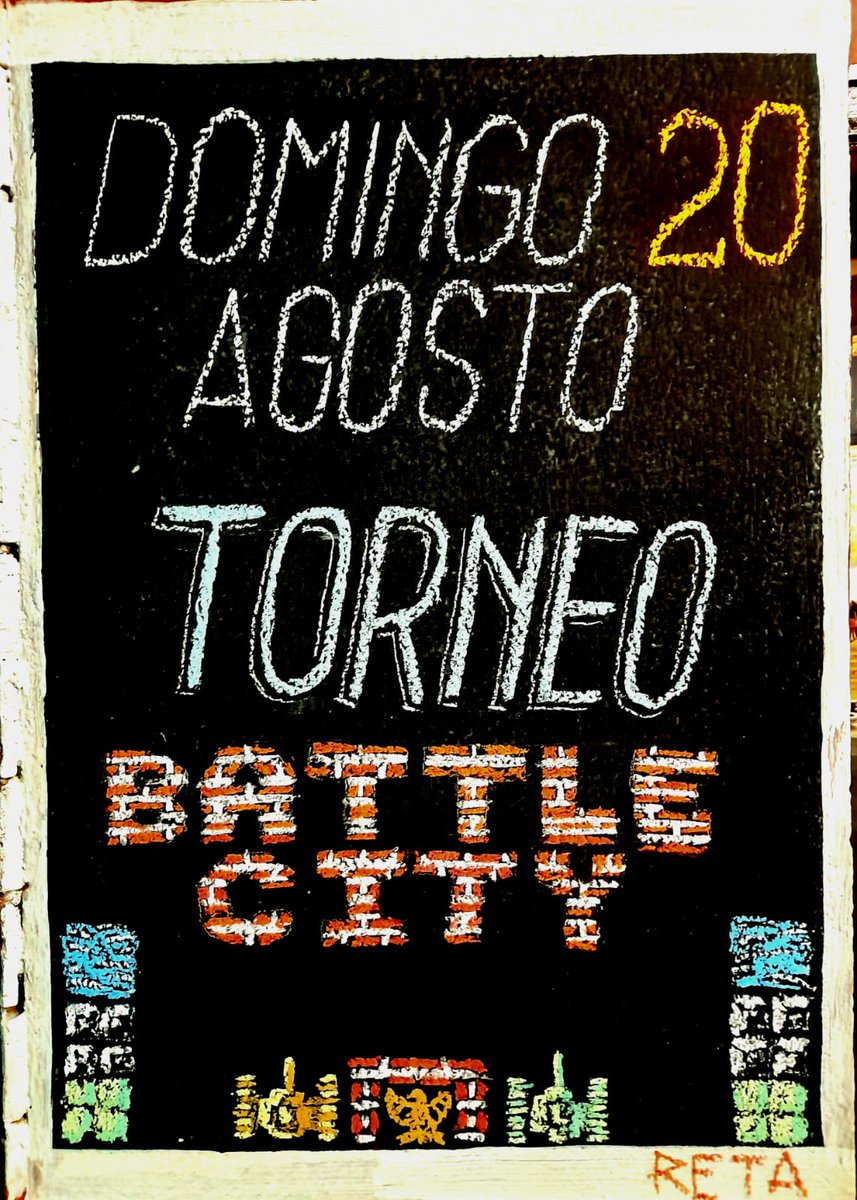 DOMINGO 20
AGOSTO
TORNEO
BATTLE
CITY
RETA